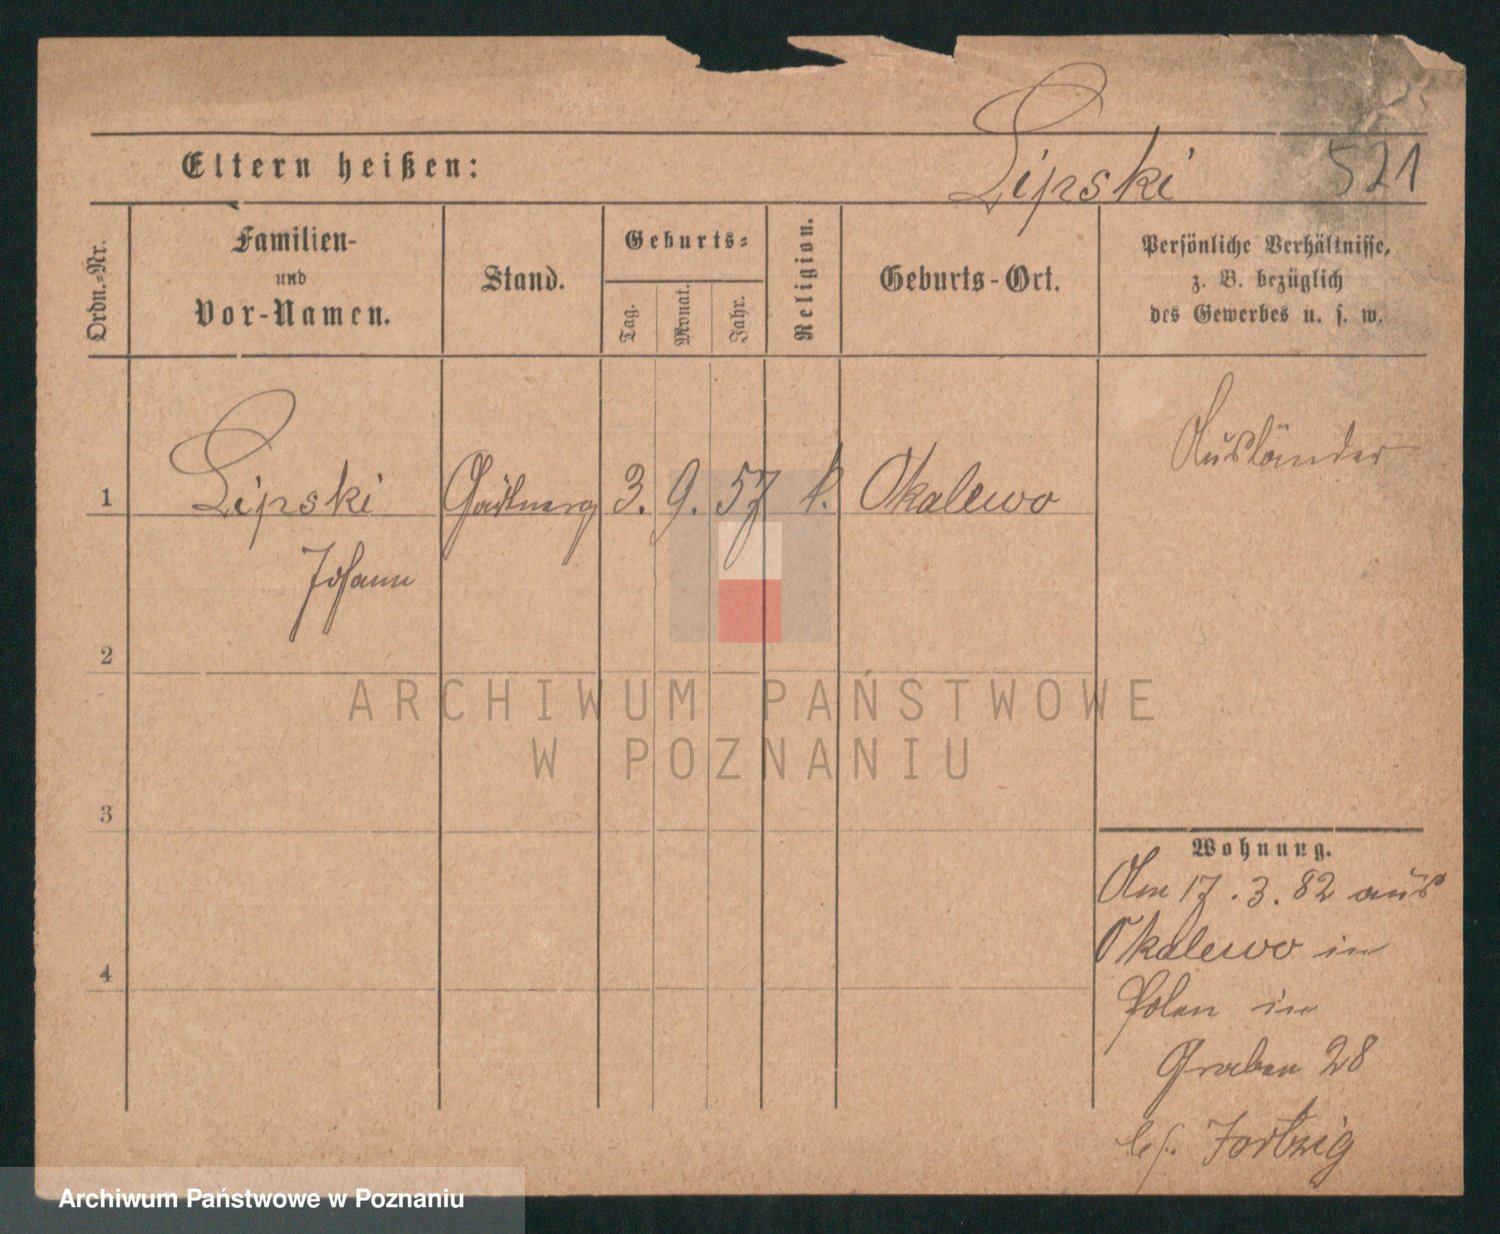 Lipski
Eltern heißen:
521
Ordn.-Nr.
Familien-
und
Vor-Namen.
Stand.
Geburts-
Tag.
Monat.
Jahr.
Religion.
Geburts-Ort.
Persönliche Verhältnisse,
z. B. bezüglich
des Gewerbes u. s. w.
1
Lipski
3. 9. 57 k. Okalewo
Ausländer
Johann
2
ARCHIWUM PAŃSTWOWE
W POZNANIU
3
Wohnung.
Am 17.3.82 aus
Okalewo in
Polen in
4
Graben 28
Archiwum Państwowe w Poznaniu